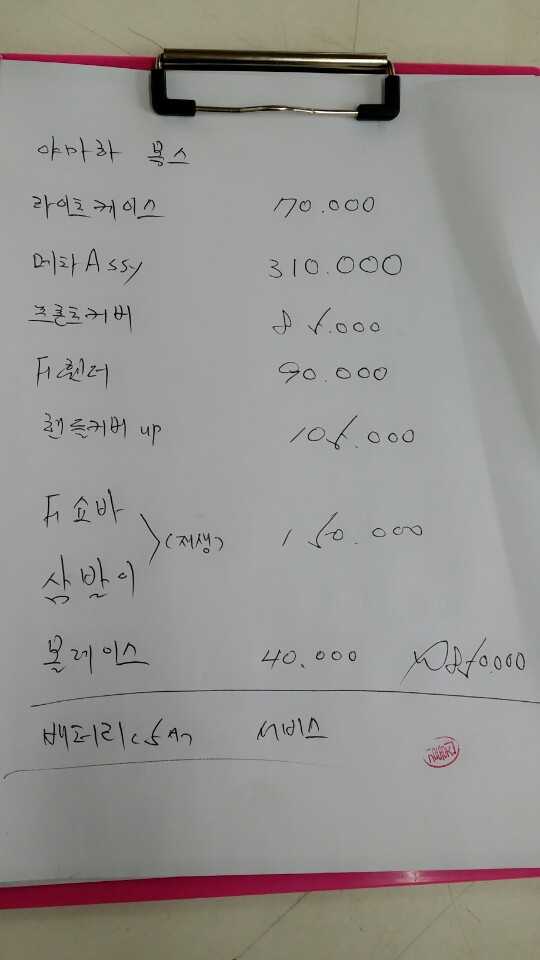 야마하 복스
라이트케이스 70.000
메타 Assy 310.000
프론트커버 85.000
Fr휀더 90.000
핸들커버 up 105.000
Fr 쇼바
(재생) 150.000
삼발이
볼레이스 40.000 850.000
배터리(5A) 서비스